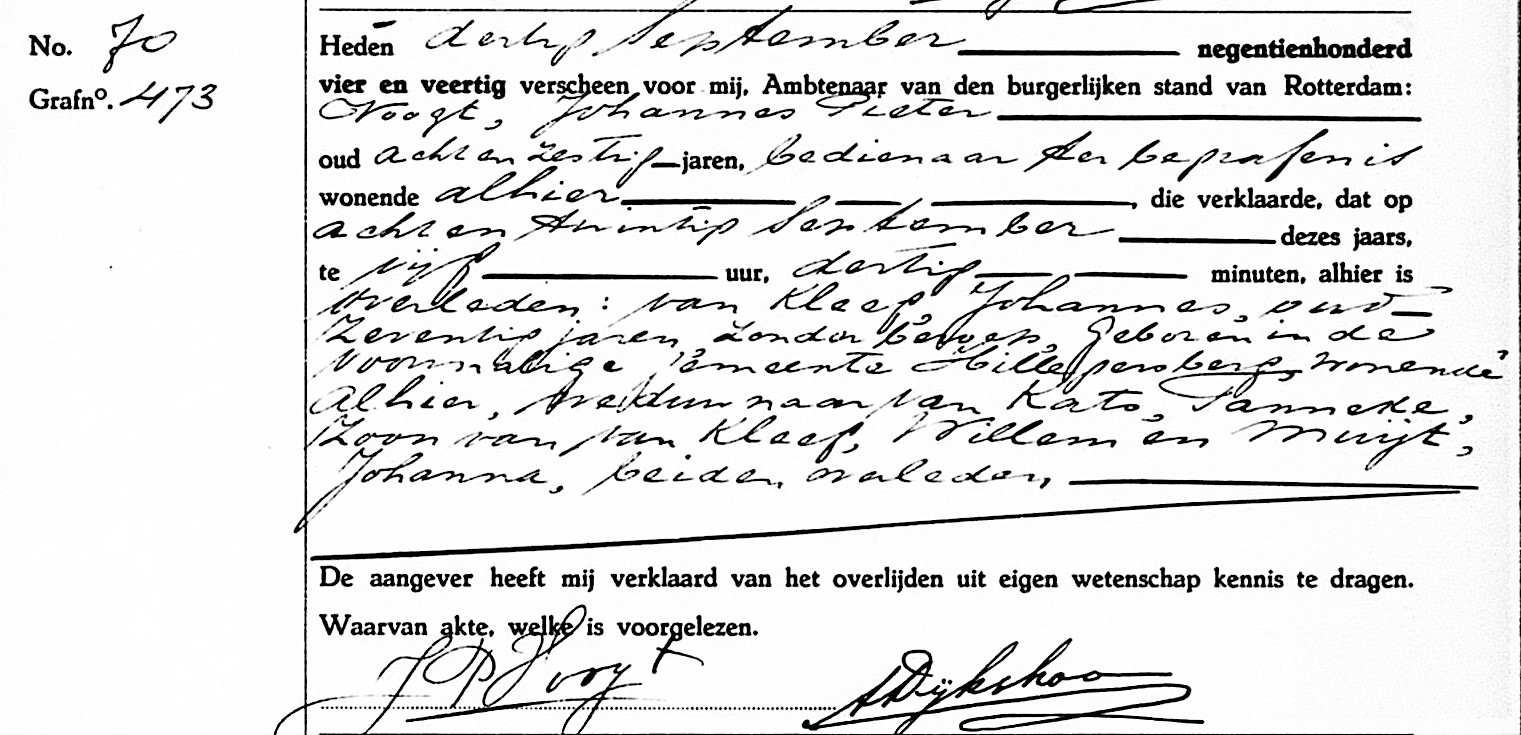 No. 70
Grafnº. 473
Heden dertig September negentienhonderd
vier en veertig verscheen voor mij, Ambtenaar van den burgerlijken stand van Rotterdam:
Noogt, Johannes Pieter
oud achtenzestig jaren, bedienaar ter begrafenis
wonende alhier, die verklaarde, dat op
achtentwintig September dezes jaars,
te vijf uur, dertig minuten, alhier is
overleden: van Kleef, Johannes, oud
zeventig jaren, zonder beroep, geboren in de
voormalige gemeente Hillegersberg, wonende
alhier, weduwnaar van Kats, Janneke,
zoon van van Kleef, Willem en Muijt,
Johanna, beiden overleden,
De aangever heeft mij verklaard van het overlijden uit eigen wetenschap kennis te dragen.
Waarvan akte, welke is voorgelezen.
J P Noogt ADijkshoo